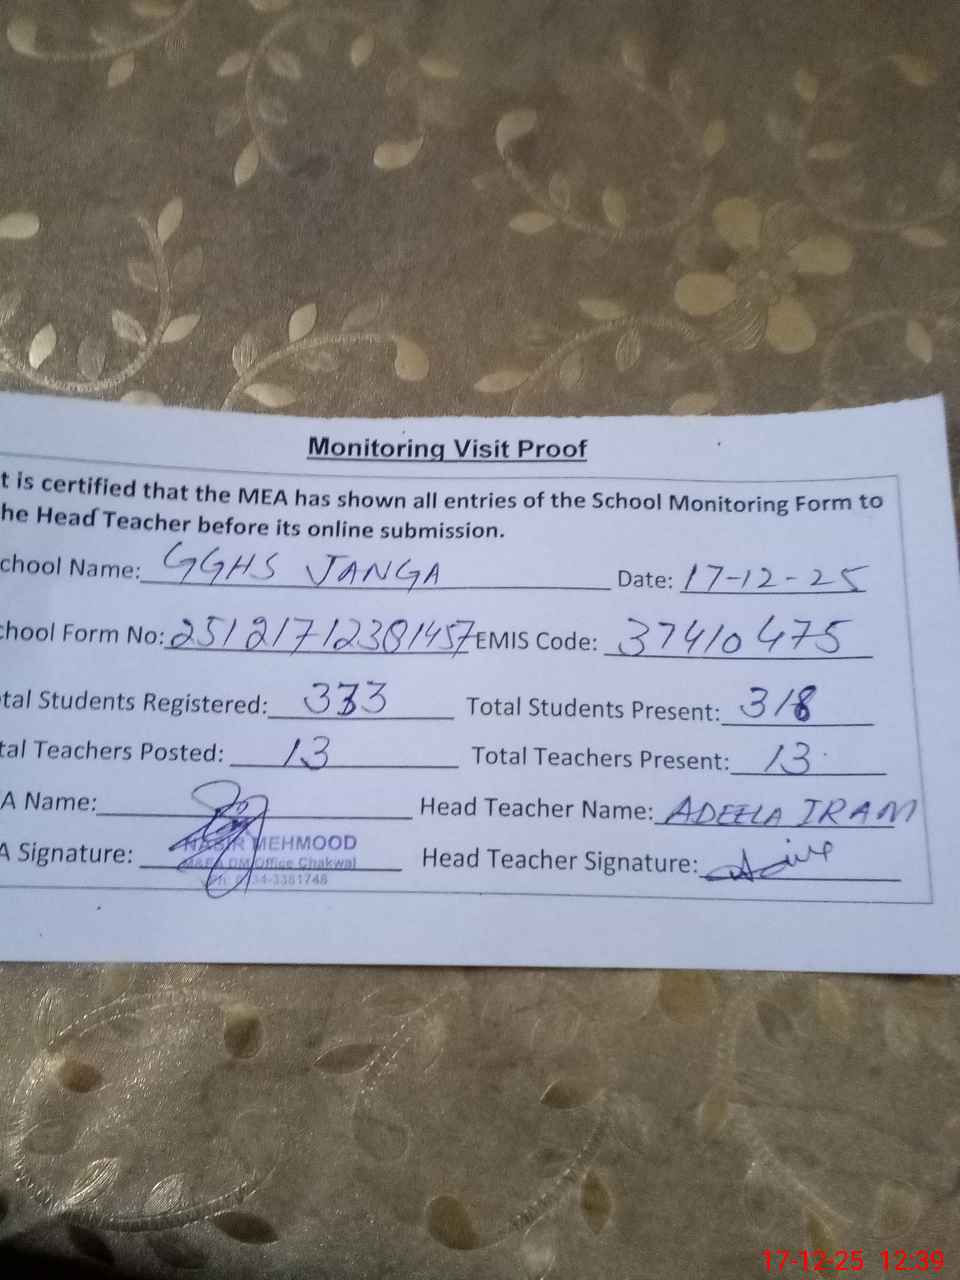 Monitoring Visit Proof
t is certified that the MEA has shown all entries of the School Monitoring Form to
he Head Teacher before its online submission.
chool Name: GGHS JANGA Date: 17-12-25
chool Form No: 25121712381457 EMIS Code: 37410475
tal Students Registered: 333 Total Students Present: 318
tal Teachers Posted: 13 Total Teachers Present: 13
A Name: Head Teacher Name: ADEELA IRAM
A Signature: NASIR MEHMOOD Head Teacher Signature:
DM Office Chakwal
34-3381748
17-12-25 12:39